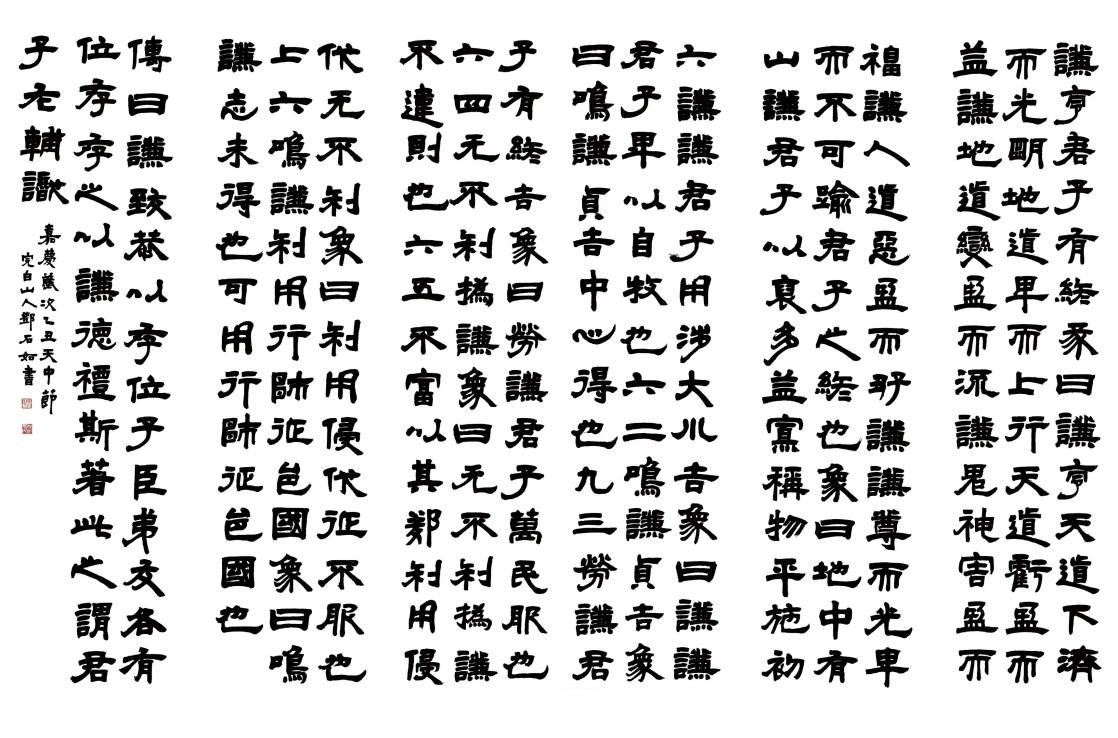 謙亨君子有終彖曰謙亨天道下濟
而光明地道卑而上行天道虧盈而
益謙地道變盈而流謙鬼神害盈而
福謙人道惡盈而好謙謙尊而光卑
而不可踰君子之終也象曰地中有
山謙君子以裒多益寡稱物平施初
六謙謙君子用涉大川吉象曰謙謙
君子卑以自牧也六二鳴謙貞吉象
曰鳴謙貞吉中心得也九三勞謙君
子有終吉象曰勞謙君子萬民服也
六四无不利撝謙象曰无不利撝謙
不違則也六五不富以其鄰利用侵
伐无不利象曰利用侵伐征不服也
上六鳴謙利用行師征邑國象曰鳴
謙志未得也可用行師征邑國也
傳曰謙致恭以存位子臣弟友各有
位存存之以謙德禮斯著此之謂君
子輔
嘉慶歲次乙丑天中節
完白山人鄧石如書